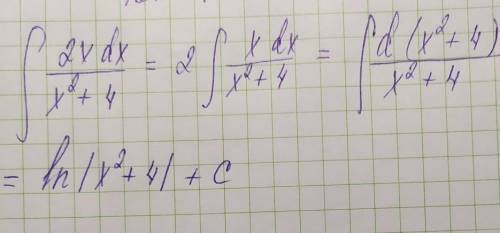 ∫ 2x dx / x² + 4 = 2 ∫ x dx / x² + 4 = ∫ d (x² + 4) / x² + 4
= ln |x² + 4| + C